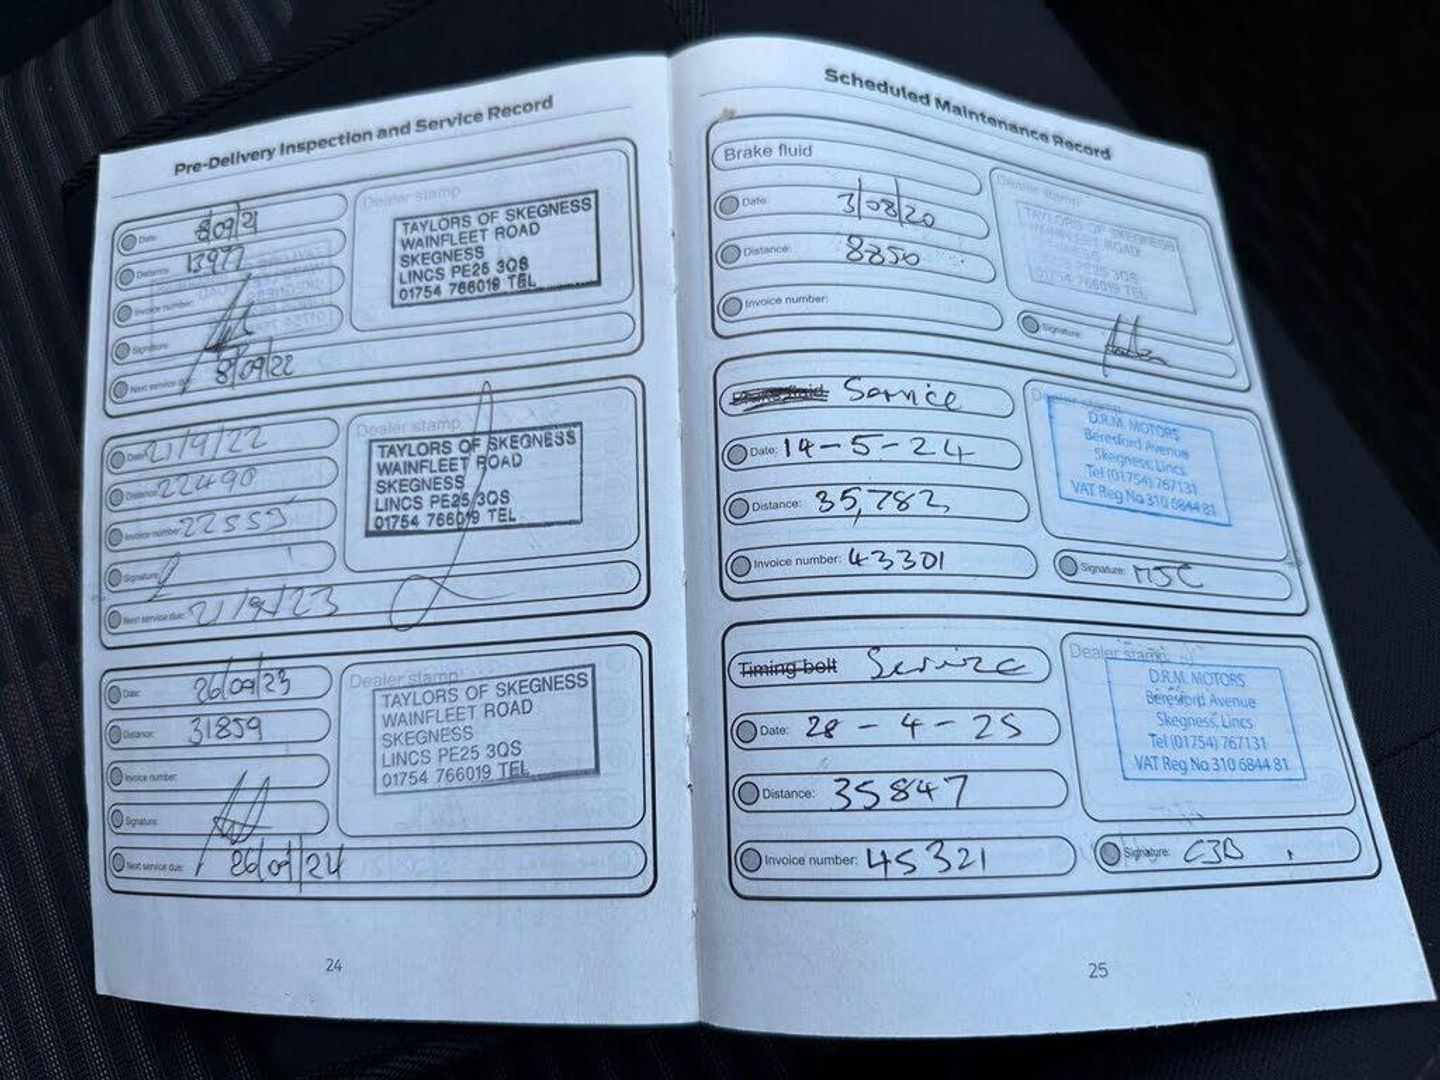 Pre-Delivery Inspection and Service Record
Date: 8/09/21
Distance: 13977
Invoice number:
Signature:
Next service due: 8/09/22
Dealer stamp
TAYLORS OF SKEGNESS
WAINFLEET ROAD
SKEGNESS
LINCS PE25 3QS
01754 766019 TEL
Date: 21/9/22
Distance: 22490
Invoice number: 22555
Signature:
Next service due: 21/9/23
Dealer stamp
TAYLORS OF SKEGNESS
WAINFLEET ROAD
SKEGNESS
LINCS PE25 3QS
01754 766019 TEL
Date: 26/09/23
Distance: 31859
Invoice number:
Signature:
Next service due: 26/09/24
Dealer stamp
TAYLORS OF SKEGNESS
WAINFLEET ROAD
SKEGNESS
LINCS PE25 3QS
01754 766019 TEL
24
Scheduled Maintenance Record
Brake fluid
Date: 3/08/20
Distance: 8850
Invoice number:
Dealer stamp
TAYLORS OF SKEGNESS
WAINFLEET ROAD
SKEGNESS
LINCS PE25 3QS
01754 766019 TEL
Signature:
Brake fluid Service
Date: 14-5-24
Distance: 35,782
Invoice number: 43301
Dealer stamp
D.R.M. MOTORS
Beresford Avenue
Skegness, Lincs
Tel (01754) 767131
VAT Reg No 310 6844 81
Signature: MJC
Timing belt Service
Date: 28-4-25
Distance: 35847
Invoice number: 45321
Dealer stamp
D.R.M. MOTORS
Beresford Avenue
Skegness, Lincs
Tel (01754) 767131
VAT Reg No 310 6844 81
Signature: CJB
25